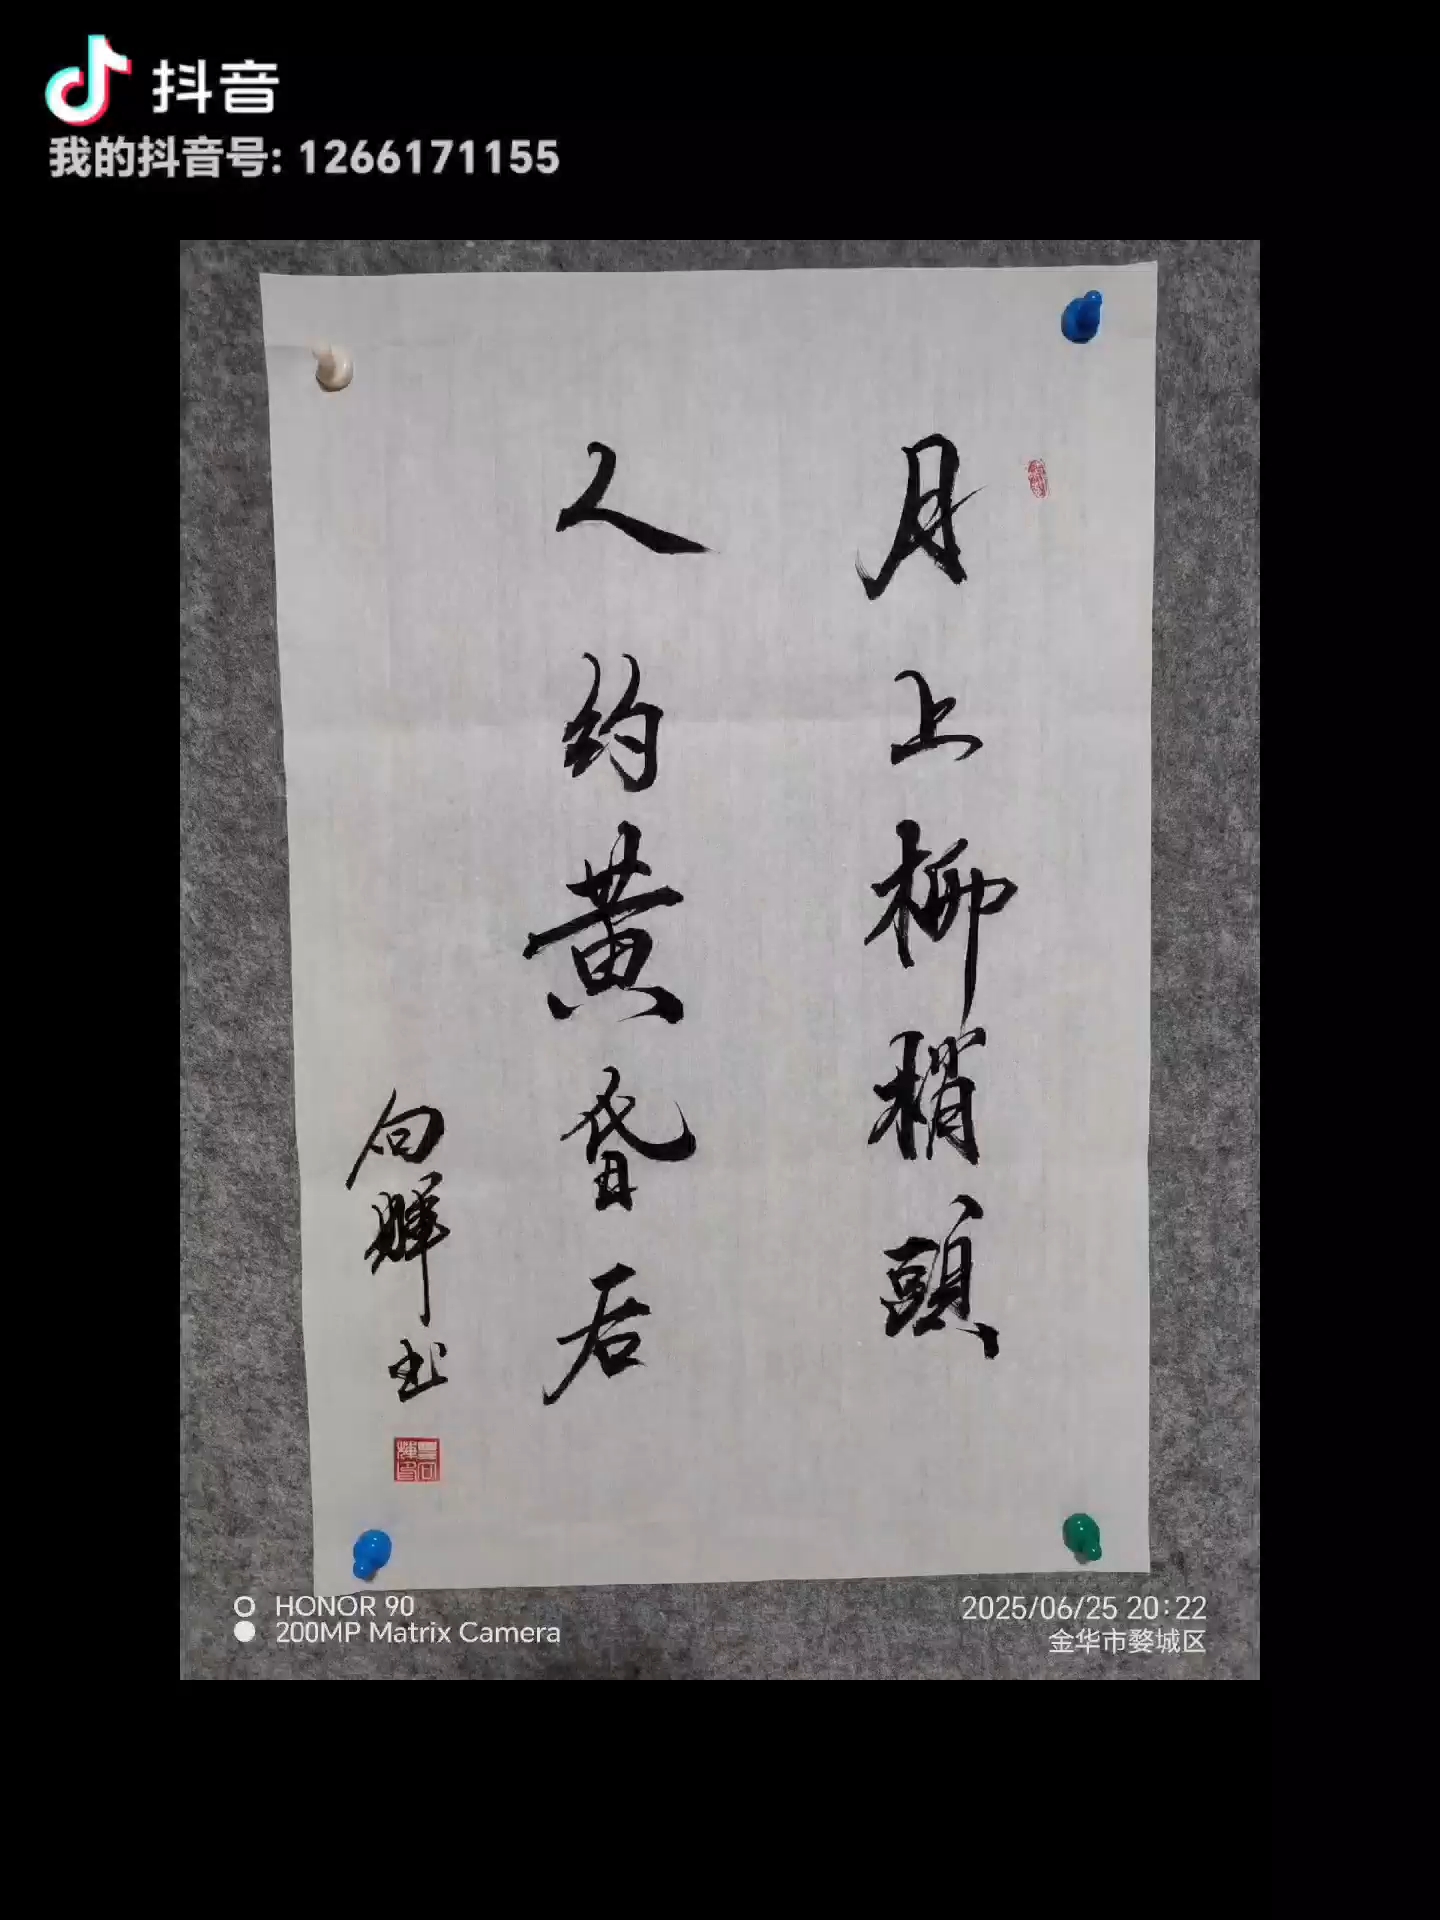 抖音
我的抖音号: 1266171155
月上柳梢頭
人约黄昏后
向辉书
HONOR 90
200MP Matrix Camera
2025/06/25 20:22
金华市婺城区